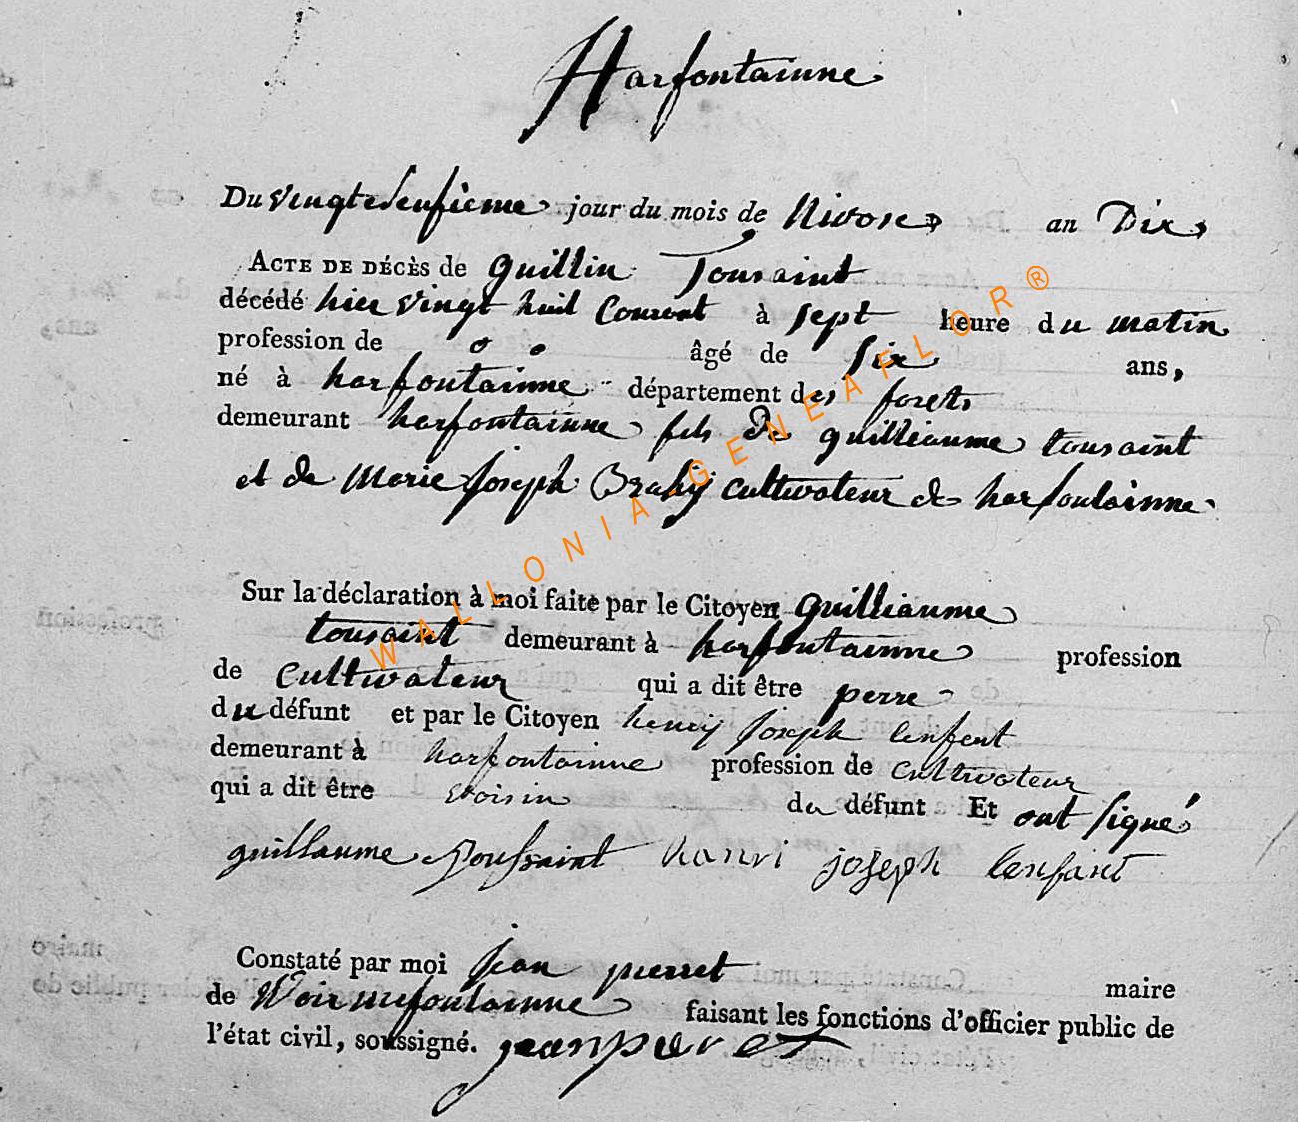 Harfontainne
Du vingtedeufieme jour du mois de Nivose an Dix
ACTE DE DÉCÈS de guillin Tousaint
décédé hier vingt huit Courant à sept heure du matin
profession de o o âgé de six ans,
né à harfontainne département des forets
demeurant harfontainne fils de guilliaume tousaint
et de Marie Joseph Brahy cultivateur de harfontainne
Sur la déclaration à moi faite par le Citoyen guilliaume
tousaint demeurant à harfontainne profession
de cultivateur qui a dit être perre
du défunt et par le Citoyen henry Joseph lenfent
demeurant à harfontainne profession de cultivateur
qui a dit être voisin du défunt Et ont signé
guillaume Toussaint hanri joseph lenfant
Constaté par moi jean pierret maire
de Woirmefontainne faisant les fonctions d'officier public de
l'état civil, soussigné. jean pieret
WALLONIA GENEAFLOR®